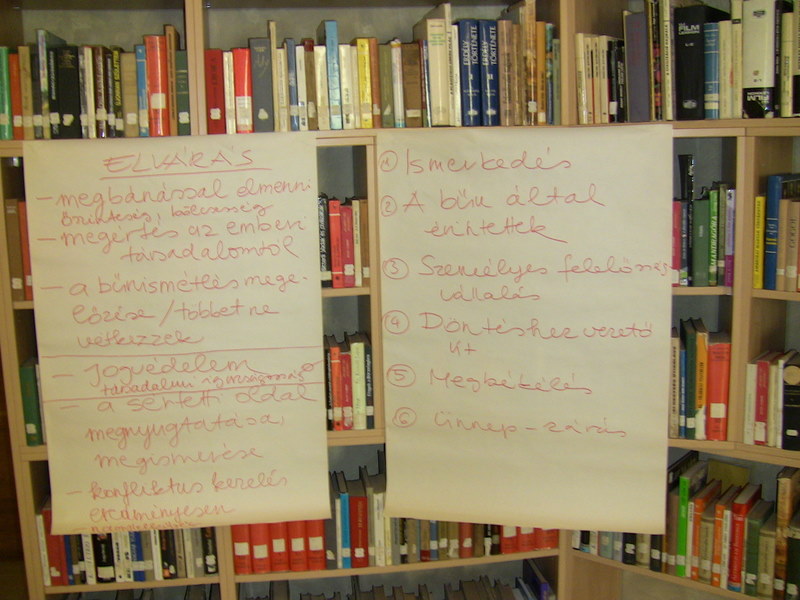 ELVÁRÁS
– megbánással elmenni
őszinteség, bölcsesség
– megértés az emberi
társadalomtól
– a bűnismétlés mege-
lőzése / többet ne
vétkezzek
– Jogvédelem
társadalmi igazságosság
– a sértetti oldal
megnyugtatása,
megismerése
– konfliktus kezelés
eredményesen
① Ismerkedés
② A bűn által
érintettek
③ Személyes felelősség
vállalás
④ Döntéshez vezető
út
⑤ Megbékélés
⑥ Ünnep – zárás
ERDÉLY
TÖRTÉNETE
FILM